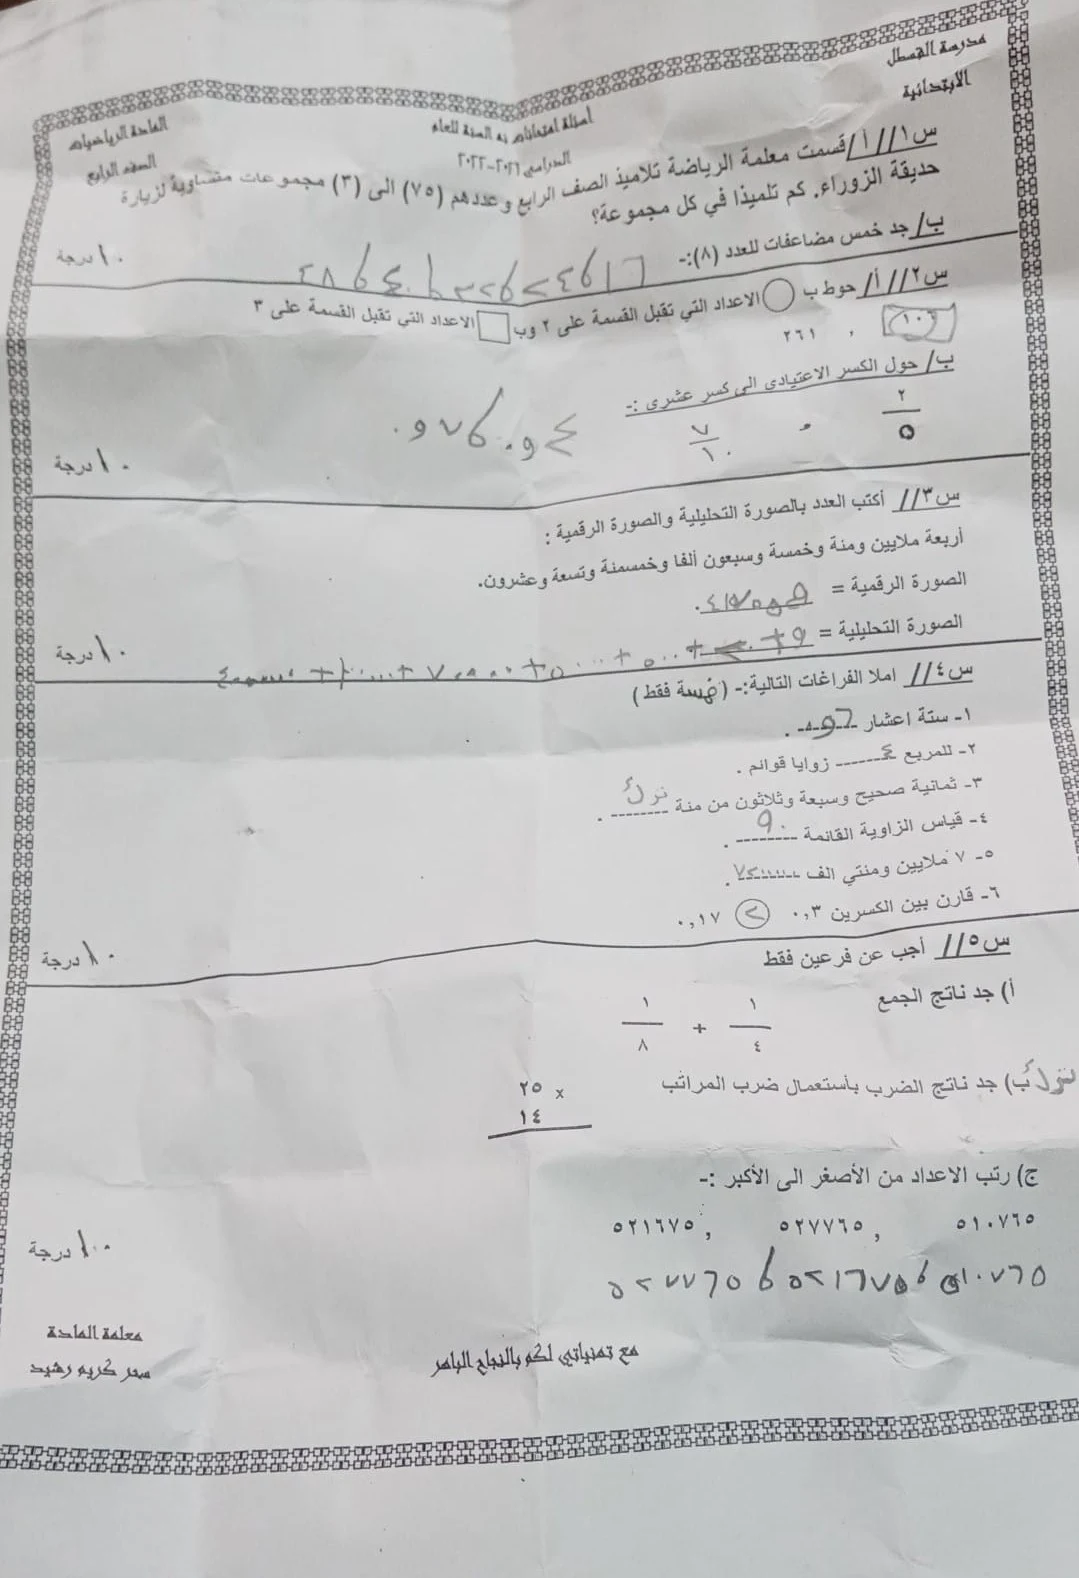 مدرسة القسطل
الابتدائية
أسئلة امتحانات نصف السنة للعام
الدراسي ٢٠٢١-٢٠٢٢
المادة الرياضيات
الصف الرابع
س١// أ/ قسمت معلمة الرياضة تلاميذ الصف الرابع وعددهم (٧٥) الى (٣) مجموعات متساوية لزيارة
حديقة الزوراء. كم تلميذا في كل مجموعة؟
ب/ جد خمس مضاعفات للعدد (٨):-
١٦ و ٢٤ و ٣٢ و ٤٠ و ٤٨
١٠ درجة
س٢// أ/ حوط ب ◯ الاعداد التي تقبل القسمة على ٢ وب □ الاعداد التي تقبل القسمة على ٣
١٠٢ , ٢٦١
ب/ حول الكسر الاعتيادي الى كسر عشري :-
٢/٥ , ٧/١٠
١٠ درجة
س٣// أكتب العدد بالصورة التحليلية والصورة الرقمية :
أربعة ملايين ومئة وخمسة وسبعون ألفا وخمسمئة وتسعة وعشرون.
الصورة الرقمية =
الصورة التحليلية =
١٠ درجة
س٤// املا الفراغات التالية:- (خمسة فقط)
١- ستة اعشار ------ .
٢- للمربع ٤------ زوايا قوائم .
٣- ثمانية صحيح وسبعة وثلاثون من مئة -------- . ترك
٤- قياس الزاوية القائمة ٩٠ -------- .
٥- ٧ ملايين ومئتي الف .
٦- قارن بين الكسرين ٠,٣ > ٠,١٧
١٠ درجة
س٥// أجب عن فرعين فقط
أ) جد ناتج الجمع
١/٤ + ١/٨
ترك ب) جد ناتج الضرب بأستعمال ضرب المراتب
٢٥ x
١٤
ج) رتب الاعداد من الأصغر الى الأكبر :-
٥١٠٧٦٥ , ٥٢٧٧٦٥ , ٥٢١٦٧٥
٥١٠٧٦٥ و ٥٢١٦٧٥ و ٥٢٧٧٦٥
١٠ درجة
مع تمنياتي لكم بالنجاح الباهر
معلمة المادة
سحر كريم رشيد